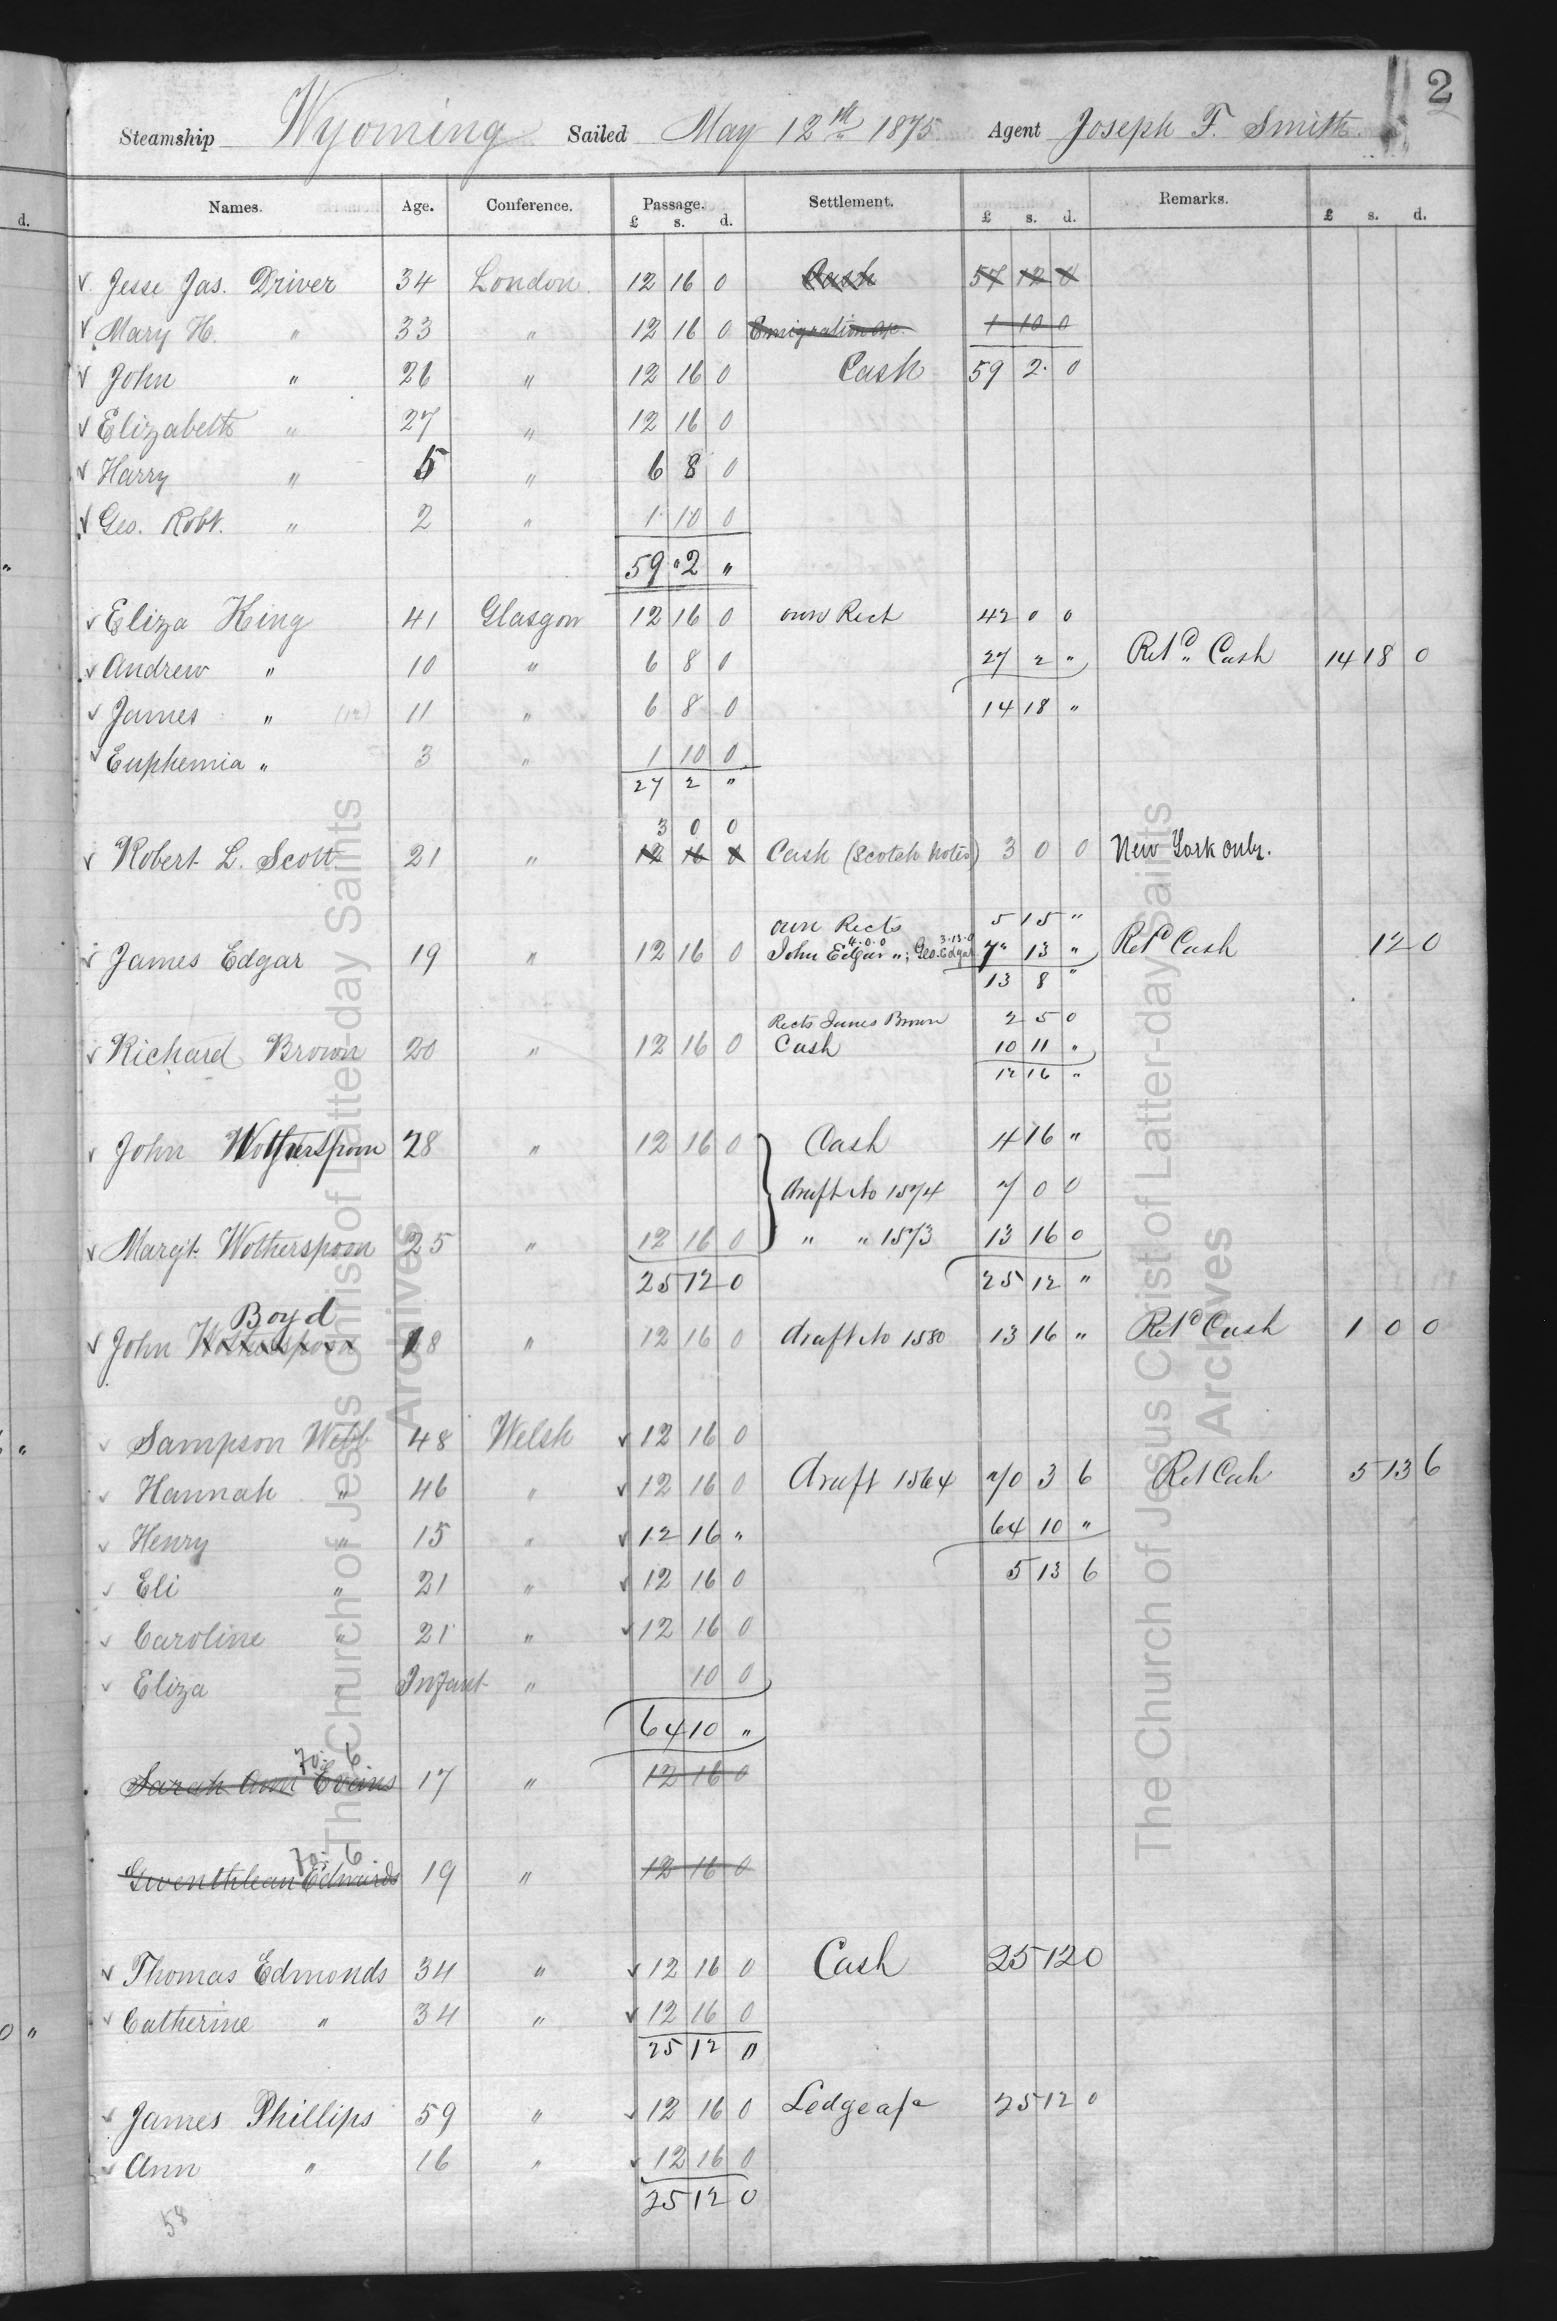 2
Steamship Wyoming Sailed May 12th 1875 Agent Joseph F. Smith
Names. Age. Conference. Passage. Settlement. Remarks.
d. £ s. d. £ s. d. £ s. d.
✓ Jesse Jas. Driver 34 London. 12 16 0 Cash 57 12 0
✓ Mary H. " 33 " 12 16 0 Emigration ac. 1 10 0
✓ John " 26 " 12 16 0 Cash 59 2 0
✓ Elizabeth " 27 " 12 16 0
✓ Harry " 5 " 6 8 0
✓ Geo. Robt. " 2 " 1 10 0
59 " 2 "
✓ Eliza King 41 Glasgow 12 16 0 own Rect 42 0 0
✓ Andrew " 10 " 6 8 0 27 2 " Retd Cash 14 18 0
✓ James " (12) 11 " 6 8 0 14 18 "
✓ Euphemia " 3 " 1 10 0
27 2 "
3 0 0
✓ Robert L. Scott 21 " 12 16 0 Cash (Scotch notes) 3 0 0 New York only.
own Rects 5 15 "
4.0.0 3.13.0
✓ James Edgar 19 " 12 16 0 John Edgar "; Geo. Edgar 7 " 13 " Retd Cash 12 0
13 8 "
Rects James Brown 2 5 0
✓ Richard Brown 20 " 12 16 0 Cash 10 11 "
12 16 "
✓ John Wotherspoon 28 " 12 16 0 Cash 4 16 "
draft No 1574 7 0 0
✓ Margt. Wotherspoon 25 " 12 16 0 " " 1573 13 16 0
25 12 0 25 12 "
Boyd
✓ John Wotherspoon 18 " 12 16 0 draft No 1580 13 16 " Retd Cash 1 0 0
✓ Sampson Webb 48 Welsh ✓ 12 16 0
✓ Hannah " 46 " ✓ 12 16 0 draft 1564 70 3 6 Ret Cash 5 13 6
✓ Henry " 15 " ✓ 12 16 " 64 10 "
✓ Eli " 21 " ✓ 12 16 0 5 13 6
✓ Caroline " 21 " ✓ 12 16 0
✓ Eliza " Infant " 10 0
64 10 "
70. 6
Sarah Ann Evans 17 " 12 16 0
70. 6
Gwenthlean Edwards 19 " 12 16 0
✓ Thomas Edmonds 34 " ✓ 12 16 0 Cash 25 12 0
✓ Catherine " 34 " ✓ 12 16 0
25 12 0
✓ James Phillips 59 " ✓ 12 16 0 Ledge a/c 25 12 0
✓ Ann " 16 " ✓ 12 16 0
25 12 0
58
The Church of Jesus Christ of Latter-day Saints
Archives
The Church of Jesus Christ of Latter-day Saints
Archives